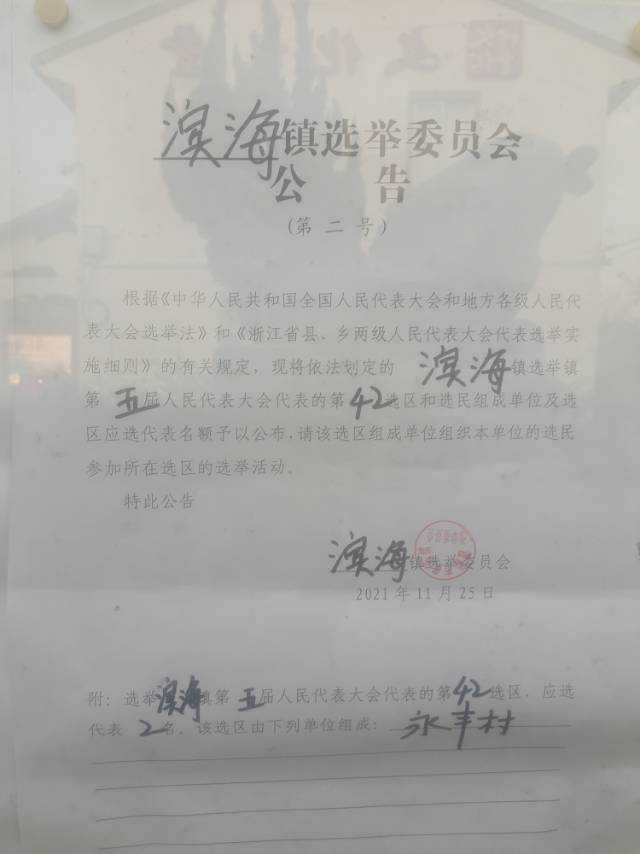 滨海镇选举委员会
公告
(第二号)
根据《中华人民共和国全国人民代表大会和地方各级人民代
表大会选举法》和《浙江省县、乡两级人民代表大会代表选举实
施细则》的有关规定,现将依法划定的 滨海镇选举镇
第五届人民代表大会代表的第42选区和选民组成单位及选
区应选代表名额予以公布,请该选区组成单位组织本单位的选民
参加所在选区的选举活动。
特此公告
滨海镇选举委员会
2021年11月25日
附:选举滨海镇第五届人民代表大会代表的第42选区,应选
代表2名,该选区由下列单位组成:永丰村